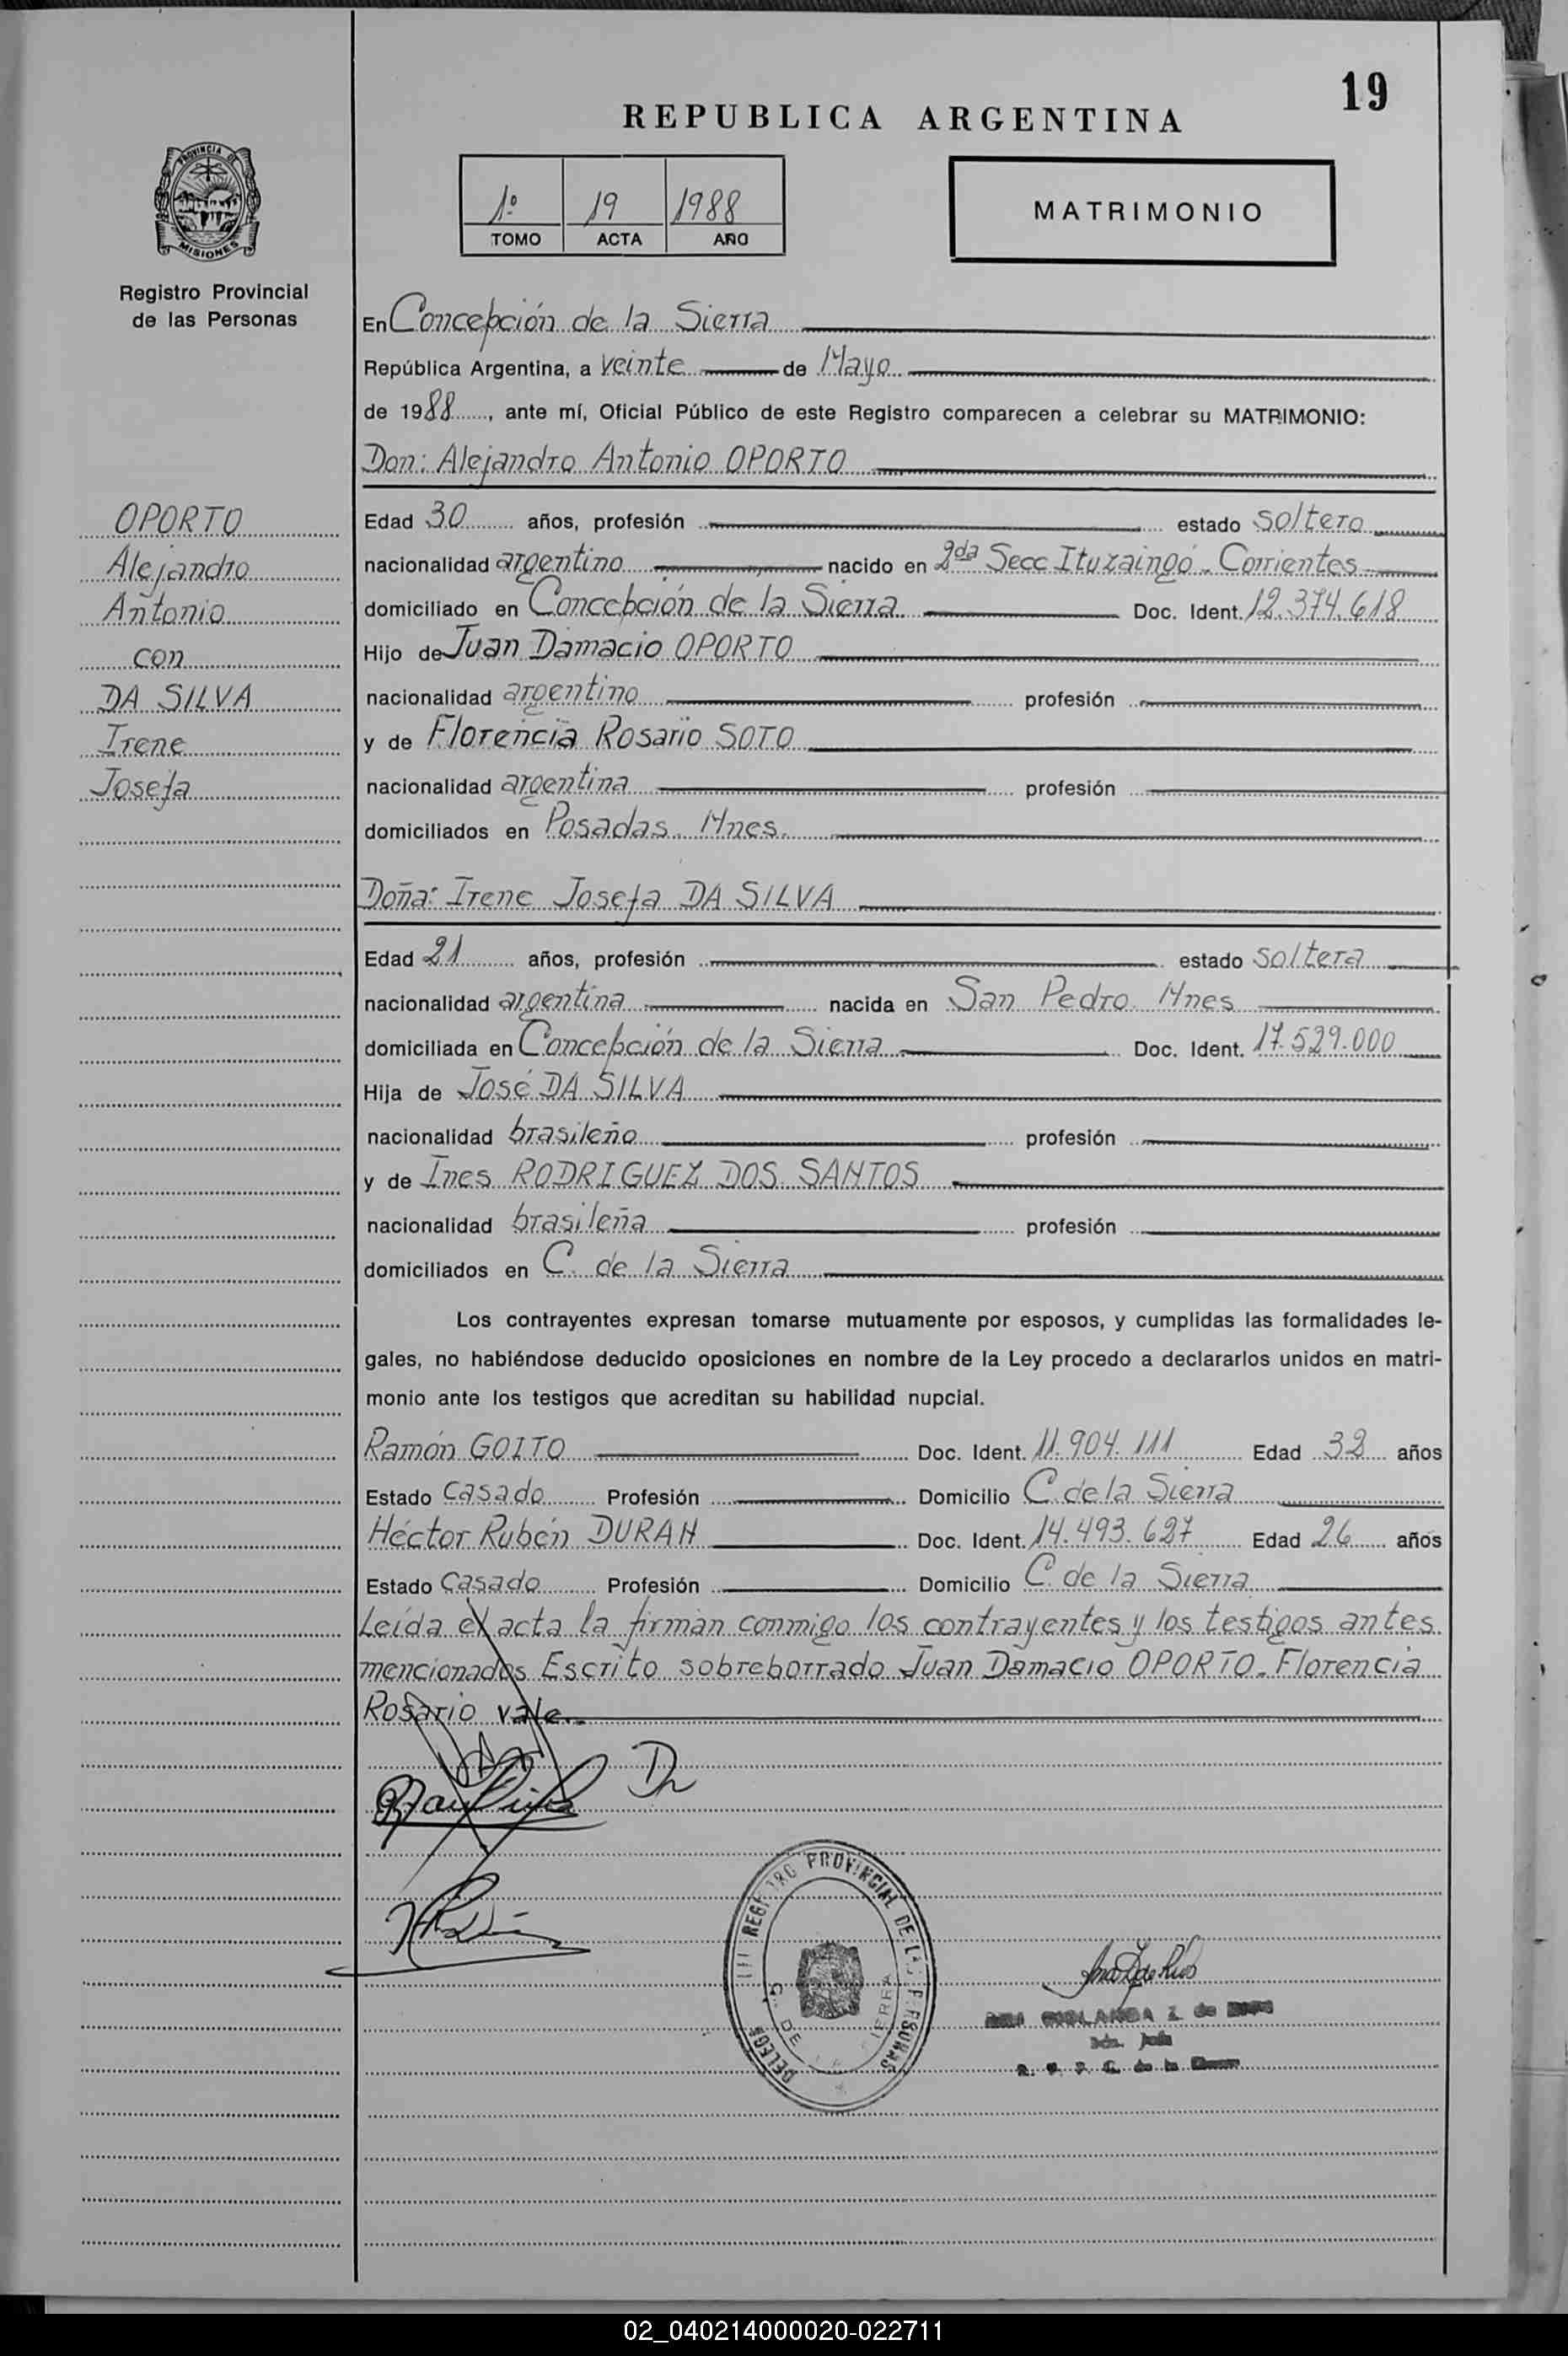 19
REPUBLICA ARGENTINA
PROVINCIA DE
MISIONES
Registro Provincial
de las Personas
1º 19 1988
TOMO ACTA AÑO
MATRIMONIO
En Concepción de la Sierra
República Argentina, a veinte de Mayo
de 1988, ante mí, Oficial Público de este Registro comparecen a celebrar su MATRIMONIO:
Don: Alejandro Antonio OPORTO
OPORTO
Alejandro
Antonio
con
DA SILVA
Irene
Josefa
Edad 30 años, profesión estado soltero
nacionalidad argentino nacido en 2da Secc Ituzaingó - Corrientes
domiciliado en Concepción de la Sierra Doc. Ident. 12.374.618
Hijo de Juan Damacio OPORTO
nacionalidad argentino profesión
y de Florencia Rosario SOTO
nacionalidad argentina profesión
domiciliados en Posadas. Mnes.
Doña: Irene Josefa DA SILVA
Edad 21 años, profesión estado soltera
nacionalidad argentina nacida en San Pedro. Mnes
domiciliada en Concepción de la Sierra Doc. Ident. 17.529.000
Hija de José DA SILVA
nacionalidad brasileño profesión
y de Ines RODRIGUEZ DOS SANTOS
nacionalidad brasileña profesión
domiciliados en C. de la Sierra
Los contrayentes expresan tomarse mutuamente por esposos, y cumplidas las formalidades le-
gales, no habiéndose deducido oposiciones en nombre de la Ley procedo a declararlos unidos en matri-
monio ante los testigos que acreditan su habilidad nupcial.
Ramón GOITO Doc. Ident. 11.904.111 Edad 32 años
Estado casado Profesión Domicilio C. de la Sierra
Héctor Rubén DURAN Doc. Ident. 14.493.627 Edad 26 años
Estado casado Profesión Domicilio C. de la Sierra
Leída el acta la firman conmigo los contrayentes y los testigos antes
mencionados. Escrito sobreborrado Juan Damacio OPORTO. Florencia
Rosario vale.
REGISTRO PROVINCIAL DE LAS PERSONAS
C. DE LA SIERRA
02_040214000020-022711